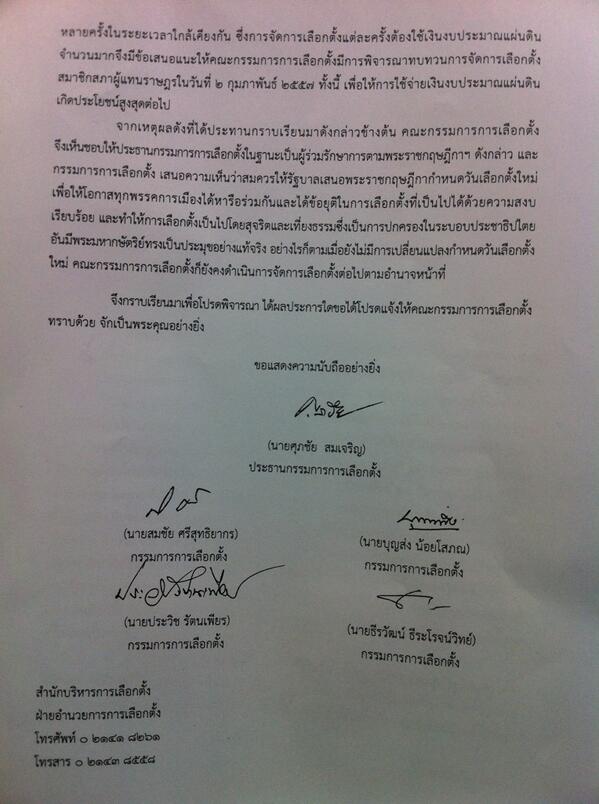 หลายครั้งในระยะเวลาใกล้เคียงกัน ซึ่งการจัดการเลือกตั้งแต่ละครั้งต้องใช้เงินงบประมาณแผ่นดิน
จำนวนมากจึงมีข้อเสนอแนะให้คณะกรรมการการเลือกตั้งมีการพิจารณาทบทวนการจัดการเลือกตั้ง
สมาชิกสภาผู้แทนราษฎรในวันที่ ๒ กุมภาพันธ์ ๒๕๕๗ ทั้งนี้ เพื่อให้การใช้จ่ายเงินงบประมาณแผ่นดิน
เกิดประโยชน์สูงสุดต่อไป
จากเหตุผลดังที่ได้ประทานกราบเรียนมาดังกล่าวข้างต้น คณะกรรมการการเลือกตั้ง
จึงเห็นชอบให้ประธานกรรมการการเลือกตั้งในฐานะเป็นผู้ร่วมรักษาการตามพระราชกฤษฎีกาฯ ดังกล่าว และ
กรรมการการเลือกตั้ง เสนอความเห็นว่าสมควรให้รัฐบาลเสนอพระราชกฤษฎีกากำหนดวันเลือกตั้งใหม่
เพื่อให้โอกาสทุกพรรคการเมืองได้หารือร่วมกันและได้ข้อยุติในการเลือกตั้งที่เป็นไปได้ด้วยความสงบ
เรียบร้อย และทำให้การเลือกตั้งเป็นไปโดยสุจริตและเที่ยงธรรมซึ่งเป็นการปกครองในระบอบประชาธิปไตย
อันมีพระมหากษัตริย์ทรงเป็นประมุขอย่างแท้จริง อย่างไรก็ตามเมื่อยังไม่มีการเปลี่ยนแปลงกำหนดวันเลือกตั้ง
ใหม่ คณะกรรมการการเลือกตั้งก็ยังคงดำเนินการจัดการเลือกตั้งต่อไปตามอำนาจหน้าที่
จึงกราบเรียนมาเพื่อโปรดพิจารณา ได้ผลประการใดขอได้โปรดแจ้งให้คณะกรรมการการเลือกตั้ง
ทราบด้วย จักเป็นพระคุณอย่างยิ่ง
ขอแสดงความนับถืออย่างยิ่ง
(นายศุภชัย สมเจริญ)
ประธานกรรมการการเลือกตั้ง
(นายสมชัย ศรีสุทธิยากร)
กรรมการการเลือกตั้ง
(นายบุญส่ง น้อยโสภณ)
กรรมการการเลือกตั้ง
(นายประวิช รัตนเพียร)
กรรมการการเลือกตั้ง
(นายธีรวัฒน์ ธีระโรจน์วิทย์)
กรรมการการเลือกตั้ง
สำนักบริหารการเลือกตั้ง
ฝ่ายอำนวยการการเลือกตั้ง
โทรศัพท์ ๐ ๒๑๔๑ ๘๒๖๑
โทรสาร ๐ ๒๑๔๓ ๘๕๕๘